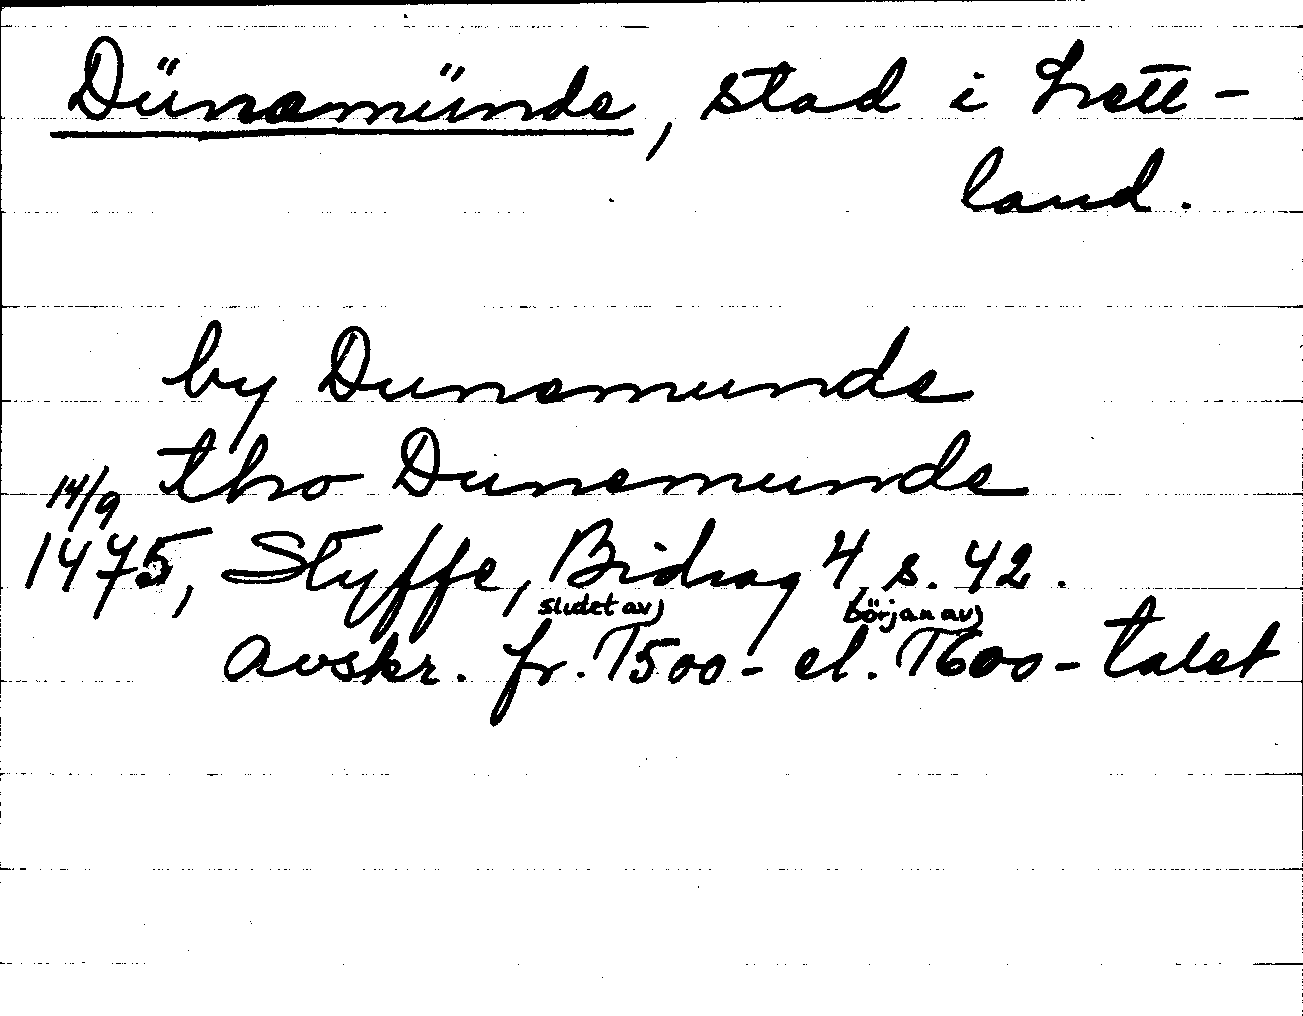 Dünamünde, stad i Lett-
land.
by Dunemunde
tho Dunemunde
14/9
1475, Styffe, Bidrag 4, s. 42.
slutet av) början av)
Avskr. fr. 1500- el. 1600-talet